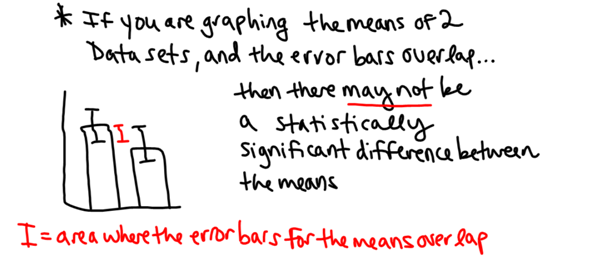 * If you are graphing the means of 2
Data sets, and the error bars overlap...
then there may not be
a statistically
significant difference between
the means
I = area where the error bars for the means overlap